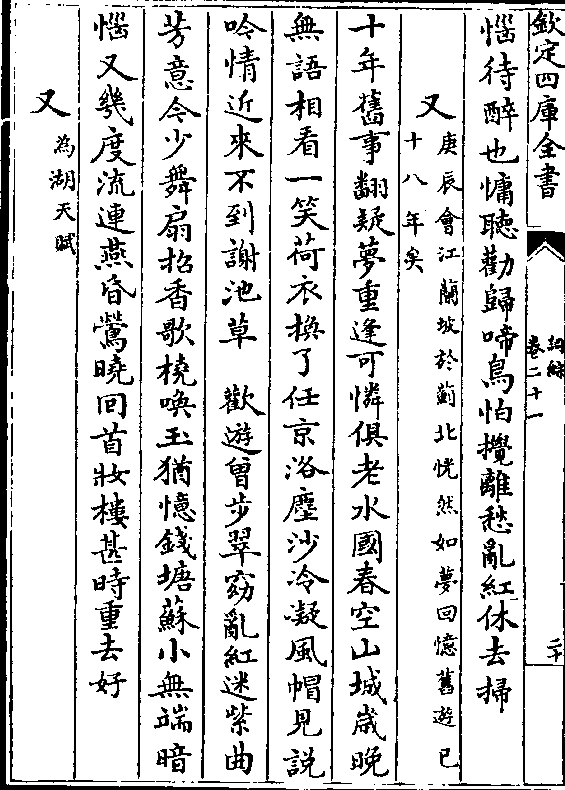 欽定四庫全書
詞綜
卷二十一
二十
惱待醉也慵聽勸歸啼鳥怕攪離愁亂紅休去掃
又
庚辰會江蘭坡於薊北恍然如夢回憶舊遊已
十八年矣
十年舊事翻疑夢重逢可憐俱老水國春空山城歲晚
無語相看一笑荷衣換了任京洛塵沙冷凝風帽見說
吟情近來不到謝池草　歡遊曾步翠窈亂紅迷紫曲
芳意今少舞扇招香歌橈喚玉猶憶錢塘蘇小無端暗
惱又幾度流連燕昏鶯曉回首妝樓甚時重去好
又
為湖天賦